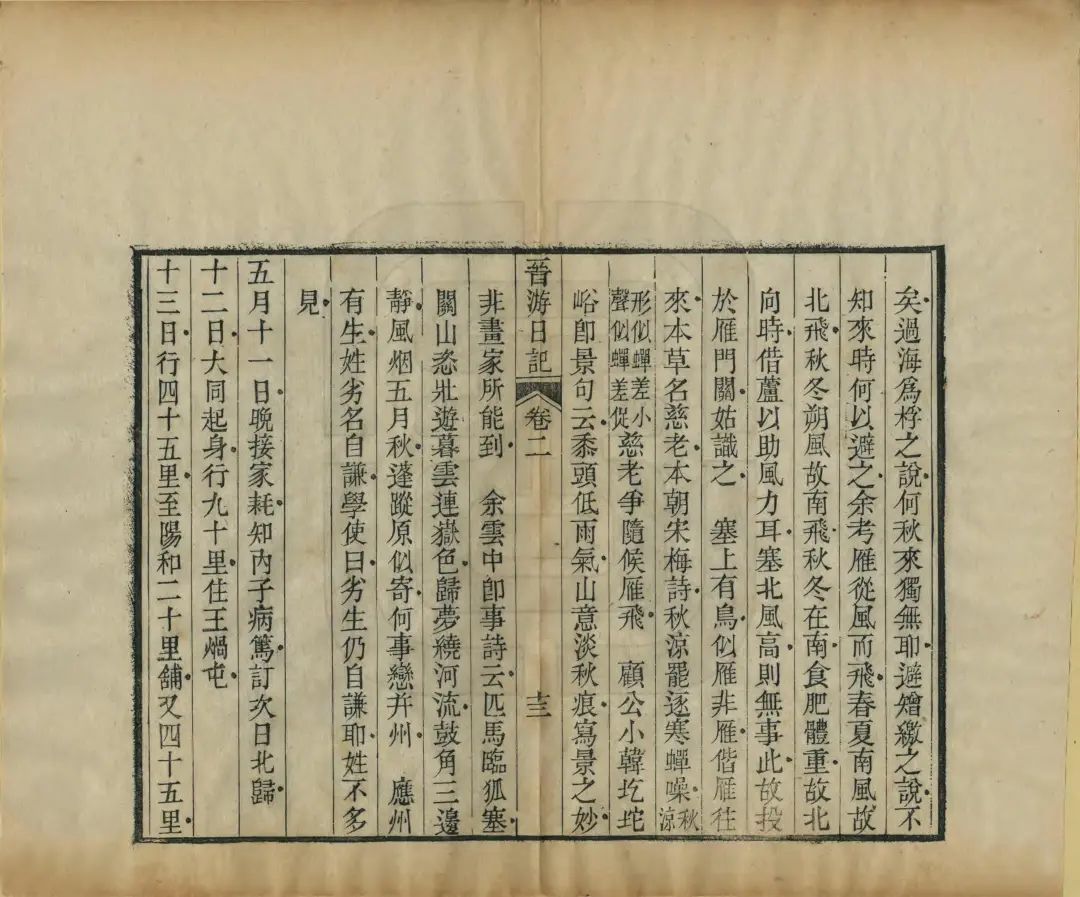 矣過海爲桴之說何秋來獨無耶避矰繳之說不
知來時何以避之余考雁從風而飛春夏南風故
北飛秋冬朔風故南飛秋冬在南食肥體重故北
向時借蘆以助風力耳塞北風高則無事此故投
於雁門關姑識之　塞上有鳥似雁非雁偕雁往
來本草名慈老本朝宋梅詩秋涼罷逐寒蟬噪秋涼
形似蟬差小聲似蟬差促慈老爭隨候雁飛　顧公小韓圪坨
峪卽景句云黍頭低雨氣山意淡秋痕寫景之妙
晉游日記　卷二　十三
非畫家所能到　余雲中卽事詩云匹馬臨狐塞
關山恣壯遊暮雲連嶽色歸夢繞河流鼓角三邊
靜風烟五月秋蓬蹤原似寄何事戀并州　應州
有生姓劣名自謙學使曰劣生仍自謙耶姓不多
見
五月十一日晚接家耗知內子病篤訂次日北歸
十二日大同起身行九十里住王煱屯
十三日行四十五里至陽和二十里舖又四十五里